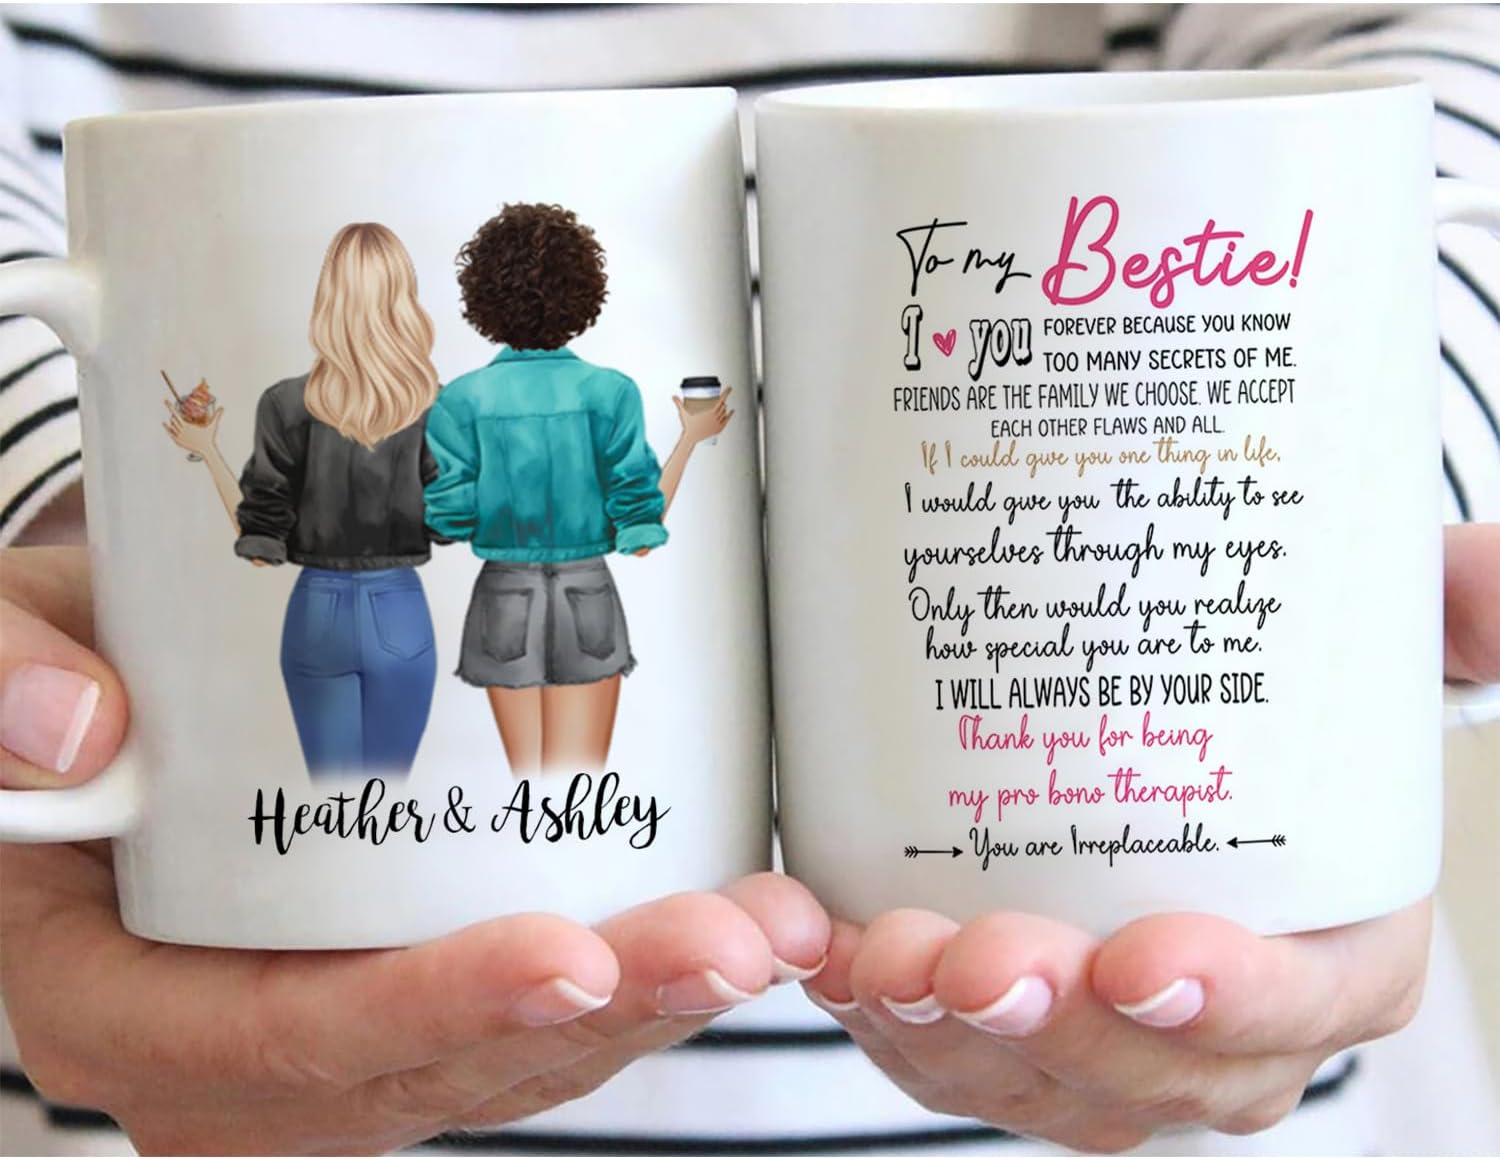 Heather & Ashley
To my Bestie!
I you FOREVER BECAUSE YOU KNOW
TOO MANY SECRETS OF ME.
FRIENDS ARE THE FAMILY WE CHOOSE. WE ACCEPT
EACH OTHER FLAWS AND ALL.
If I could give you one thing in life,
I would give you the ability to see
yourselves through my eyes.
Only then would you realize
how special you are to me.
I WILL ALWAYS BE BY YOUR SIDE.
Thank you for being
my pro bono therapist.
You are Irreplaceable.